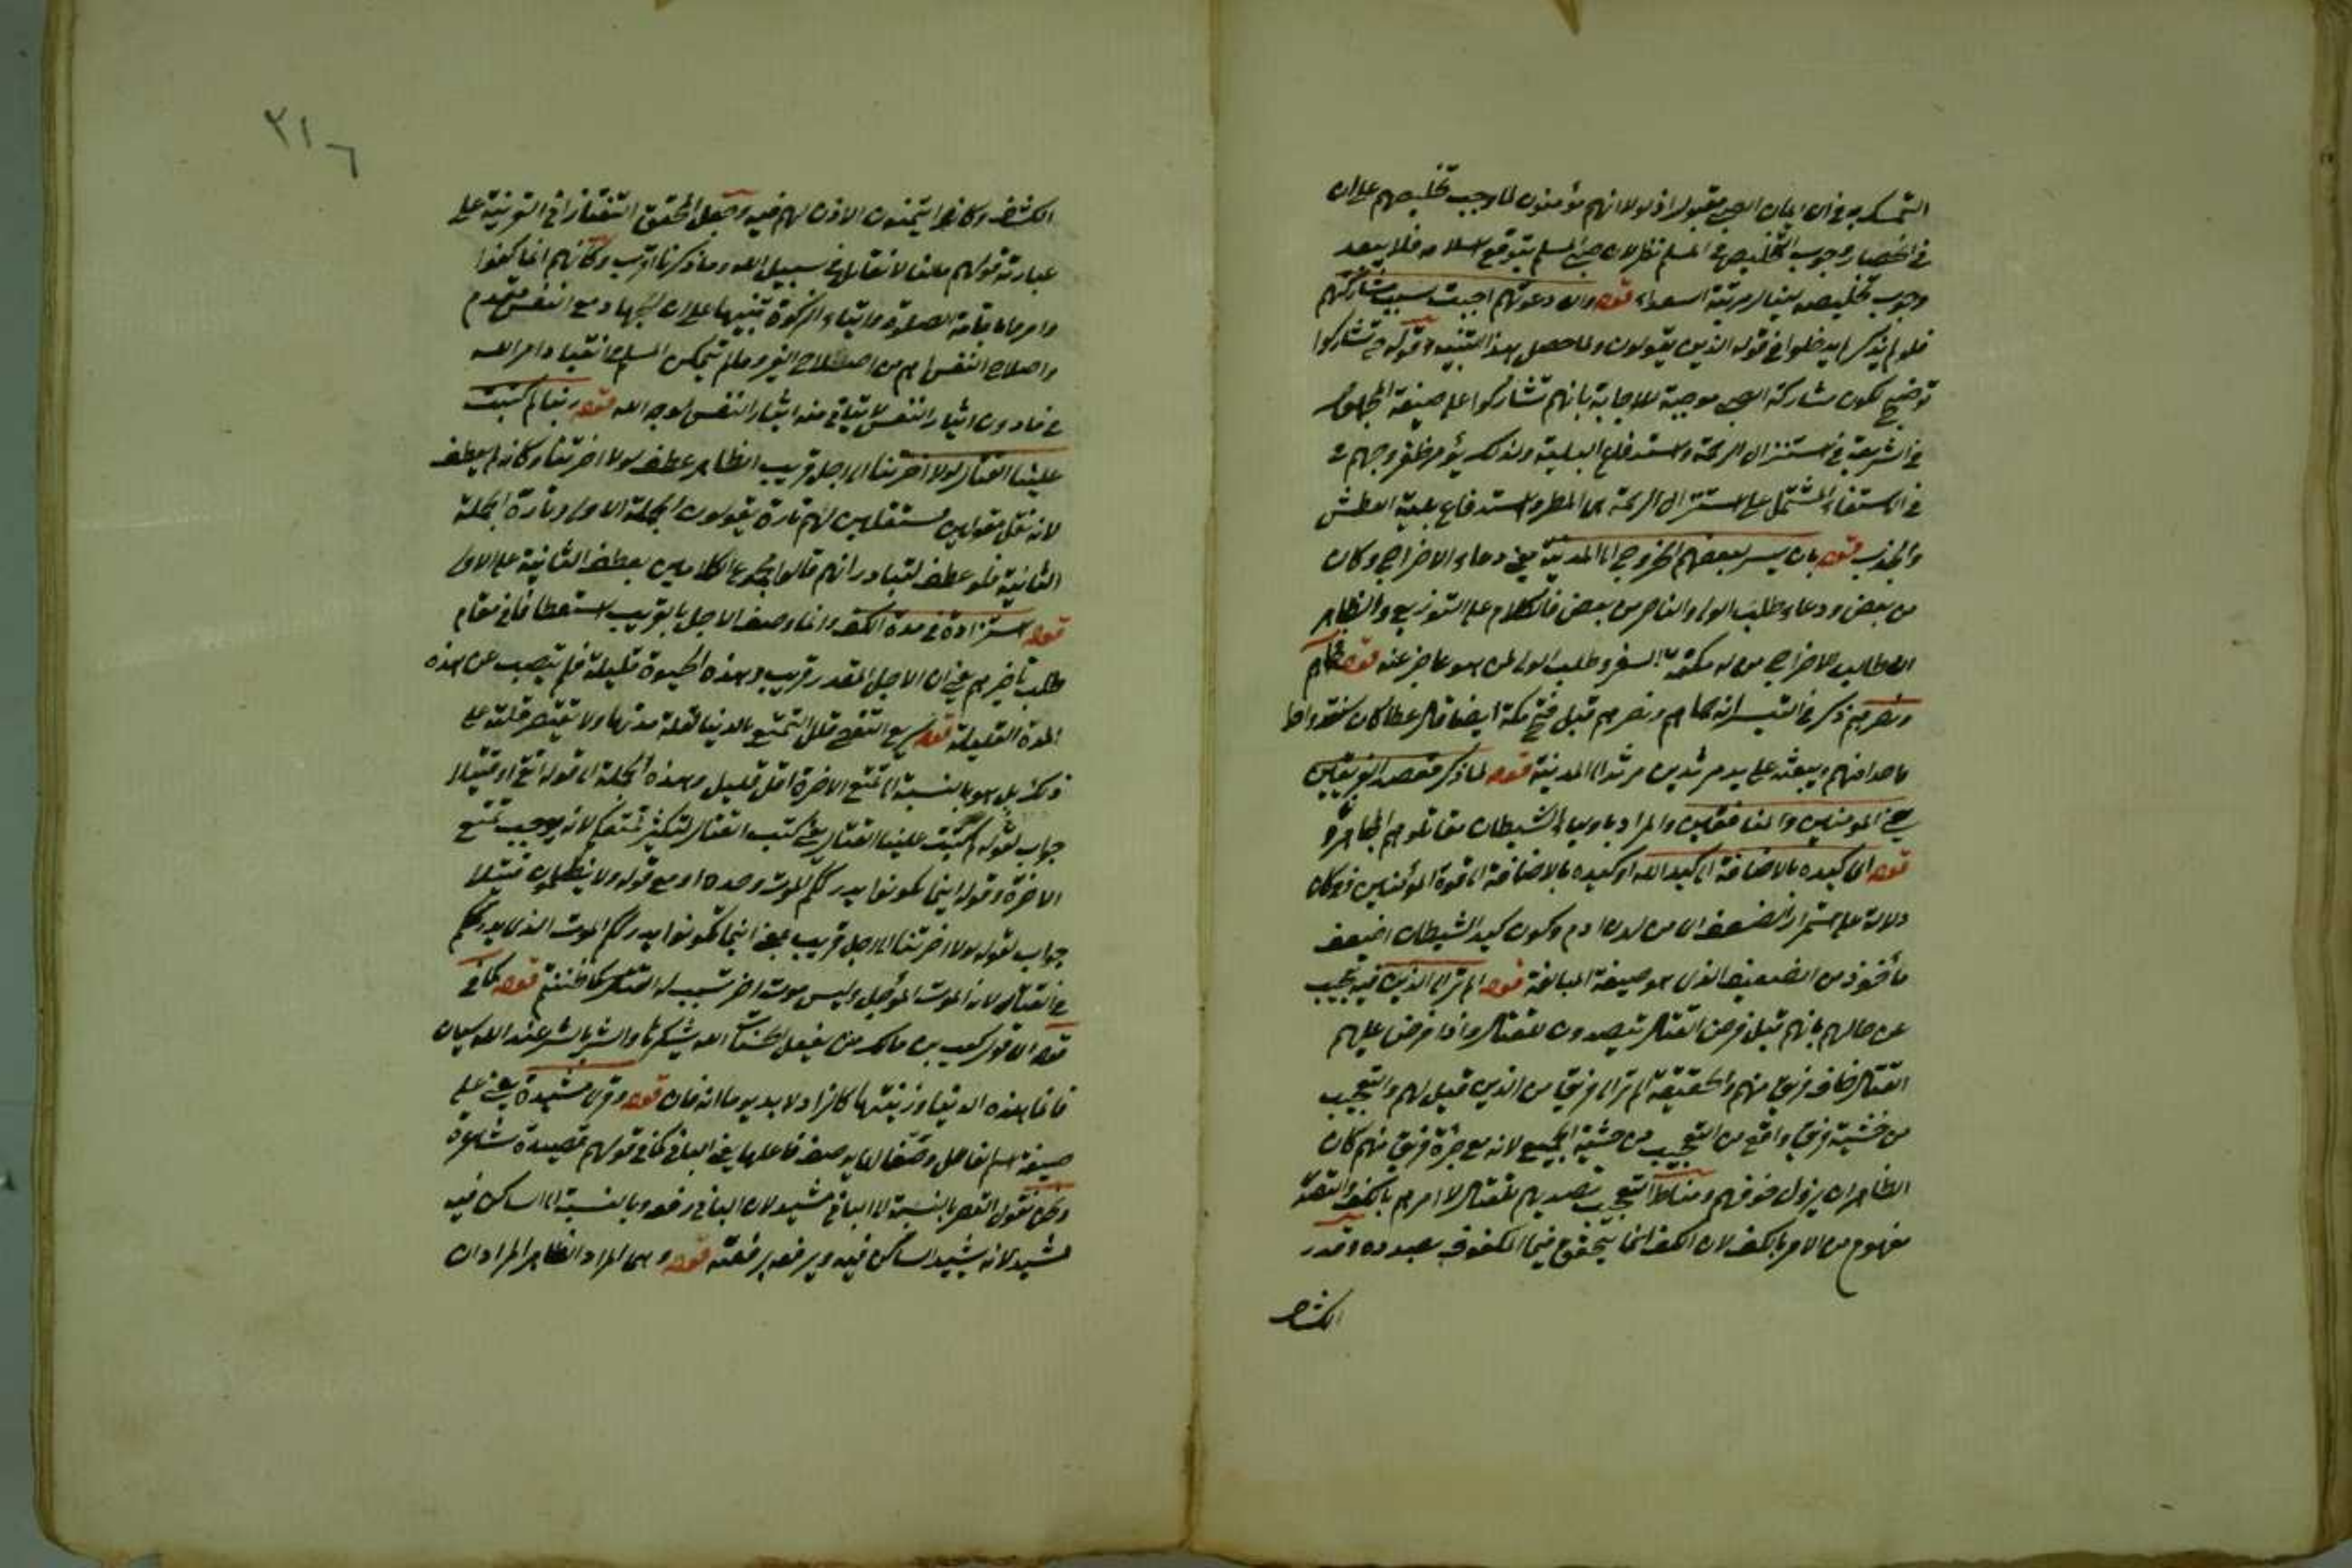 التمسك به في ان ايمان الصبي مقبول اذ لولا انهم مؤمنون لما وجب تخليصهم على ان
في انحصار وجوب التخليص في المسلم نظر لان صبي المسلم يتوقع اسلامه فلا يبعد
وجوب تخليصه لينال مرتبة السعداء قوله وان دعوتهم اجيبت بسبب مشاركتهم
فلو لم يذكر لم يدخلوا في قوله الذين يقولون ولما حصل هذا التنبيه وقوله حتى تشاركوا
توضيح لكون مشاركة الصبي موجبة للاجابة بانهم تشاركوا على صيغة المجهول
في الشريعة في استنزال الرحمة واستدفاع البلية ولذلك يؤمر بخروجهم
في الاستسقاء المشتمل على استنزال الرحمة اى المطر واستدفاع بلية العطش
والجدب قوله بان يسر لبعضهم الخروج الى المدينة يعني دعاء الاخراج وكان
من بعض ودعاء طلب الولي والناصر من بعض فالكلام على التوزيع والظاهر
ان طالب الاخراج من له مكنة السفر وطلب الولي لمن هو عاجز عنه قوله فحماهم
ونصرهم ذكر في التيسير انه حماهم ونصرهم قبل فتح مكة ايضا قال عطا كان
ما صدافنهم ويبعثه على يد مرثد بن مرثد الى المدينة قوله لما ذكر مقصد الفريقين
يعني المؤمنين والمنافقين والمراد باولياء الشيطان مقاتلوهم
قوله اى كيده بالاضافة الى كيد الله او كيده بالاضافة الى قوة المؤمنين وكان
دلالة على استمرار الضعف اى من لدن ادم وكون كيد الشيطان اضعف
مأخوذ من الضعيف الذي هو صيغة المبالغة قوله الم تر الى الذين فيه تعجيب
عن حالهم بانهم قبل فرض القتال يتصدون للقتال واذا فرض عليهم
القتال خاف فريق منهم والحقيقة الم تر الى فريق من الذين قيل لهم والتعجيب
من خشية فريق واقع من التعجيب من خشية الجميع لانه مع جرأة فريق منهم كان
الظاهر ان يزول خوفهم ومناط التعجيب تصديهم للقتال لا امرهم بالكف والتصدي
مفهوم من الامر بالكف لان الكف انما يتحقق فيما المكفوف بصدده وقدر
الكشاف
٢١٦
الكشاف وكانوا يتمنون الاذن لهم فيه وجعل المحقق التفتازاني القرينة على
عبارته قولهم ملنا لا نقاتل في سبيل الله وما ذكرنا اقرب وكأنهم انما كفوا
وامروا باقامة الصلوة وايتاء الزكوة تنبيها على ان الجهاد مع النفس مقدم
واصلاح النفس اهم من اصلاح الغير وما لم يتمكن المسلم في انقياد امر الله
في ما دون ايثار النفس لا يتاتى منه ايثار النفس لوجه الله قوله ربنا لم كتبت
علينا القتال لولا اخرتنا الى اجل قريب الظاهر عطف لولا اخرتنا وكانه لم يعطف
لانه نقل مقولين مستقلين لهم تارة يقولون الجملة الاولى وتارة الجملة
الثانية فلو عطف لتبادر انهم قالوا مجموع الكلامين بعطف الثانية على الاولى
قوله استزادة في مدة الكف وانما وصف الاجل بالقريب استعطافا في مقام
طلب تأخيرهم يعني ان الاجل المقدر قريب وهذه الحيوة قليلة فلم يتصب عن هذه
المدة القليلة قوله سريع التقضي قلل التمتع بالدنيا لقلة مدتها ولا تقتصر قلته على
ذلك بل هو بالنسبة الى تمتع الاخرة اقل قليل وهذه الجملة الى قوله اتقى او فتيلا
جواب لقوله لم كتبت علينا القتال يعني كتب القتال لتكثير تمتعكم لانه يوجب تمتع
الاخرة وقوله اينما تكونوا يدرككم الموت وحده او مع قوله ولا يظلمون فتيلا
جواب لقوله لولا اخرتنا الى اجل قريب بمعنى اينما تكونوا يدرككم الموت الذي يدرككم
في القتال لانه الموت المؤجل وليس موت اخر تسبب له القتال كما ظننتم قوله كما في
قوله اى قول كعب بن مالك من يفعل الحسنات الله يشكرها والشر بالشر عند الله سيان
فانما هذه الدنيا وزينتها كالزاد لا بد يوما انه فان قوله وقرئ مشيدة يعني على
صيغة اسم الفاعل وصفا لها بوصف فاعلها يعني الباني كما في قولهم قصيدة شاعرة
ونحن نقول القصر بالنسبة الى الباني مشيد لان الباني رفعه وبالنسبة الى الساكن فيه
مشيد لانه يشيد الساكن فيه ويرفعه برفعته قوله وهما المراد الظاهر المراد ان